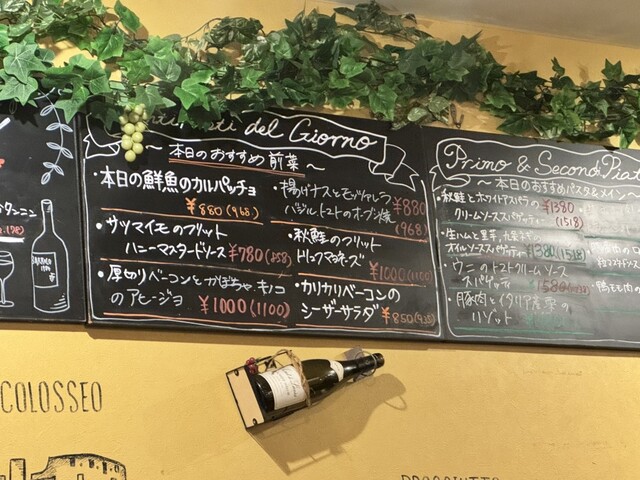 del Giorno
～本日のおすすめ前菜～
・本日の鮮魚のカルパッチョ
¥880(968)
・サツマイモのフリット
ハニーマスタードソース ¥780(858)
・厚切りベーコンとかぼちゃ、キノコ
のアヒージョ ¥1000(1100)
・揚げナスとモッツァレラ
バジルトマトのオーブン焼 ¥880
(968)
・秋鮭のフリット
トリュフマヨネーズ ¥1000(1100)
・カリカリベーコンの
シーザーサラダ ¥850(935)
Primo & Secondi Piatti
～本日のおすすめパスタ&メイン
・秋鮭とホワイトアスパラの ¥1380
クリームソーススパゲティー (1518)
・生ハムと里芋
オイルソーススパゲティー ¥1380(1518)
・ウニのトマトクリームソース
スパゲッティ ¥1580
・豚肉とイタリア産栗の
リゾット
COLOSSEO
PROSCIUTTO